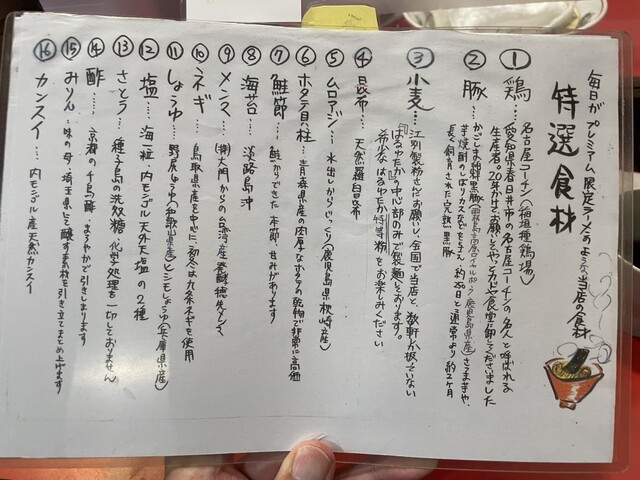 毎日がプレミアム限定ラーメンのような当店の食材
特選食材
① 鶏… 名古屋コーチン(稲垣種鶏場)
愛知県春日井市の名古屋コーチンの名人と呼ばれる
生産者。20年かけてお願いしてやっと食堂に卸してくださいました
② 豚… かごしま黒豚
芋焼酎のしぼりカスなどを与え、約
長く飼育された完熟黒豚
③ 小麦… 江別製粉さんにお願いし、全国で当店と、数軒しか扱っていない
『はるゆたか』の中心部のみで製麺しております。
希少なはるゆたか特等粉をお楽しみください
④ 昆布… 天然羅臼昆布
⑤ ムロアジ… 水出しからじっくり(鹿児島県枕崎産)
⑥ ホタテ貝柱… 青森県産の肉厚なホタテの乾物で非常に高価
⑦ 鮭節… 鮭からできた本節、甘みがあります
⑧ 海苔… 淡路島沖
⑨ メンマ… (株)大門からの台湾産発酵
⑩ ネギ… 鳥取県産を中心に、初冬は九条ネギを使用
⑪ しょうゆ… 野尻しょうゆ(和歌山県産)とミモしょうゆ(兵庫県産)
⑫ 塩… 海一粒 内モンゴル天外天塩の2種
⑬ さとう… 種子島の洗双糖(化学処理を一切しておりません)
⑭ 酢… 京都の千鳥酢・まろやかで引きしまります
⑮ みりん… 味の母・埼玉県にて醸す素材を引き立てまとめ上げます
⑯ カンスイ… 内モンゴル産天然カンスイ